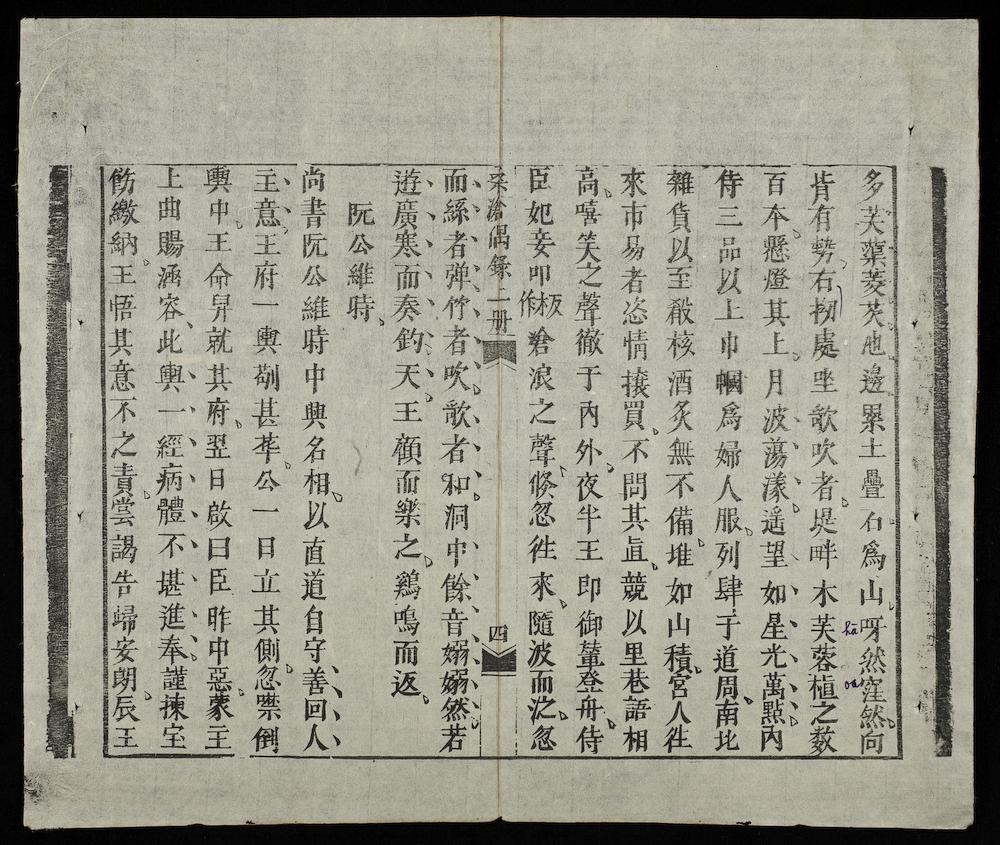 多芙蕖菱芡池邊累土疊石爲山呀然窪然向
ha
oa
背有勢右拗處坐歌吹者堤畔木芙蓉植之数
百本懸燈其上月波蕩漾遥望如星光萬點内
侍三品以上巾幗爲婦人服列肆于道周南北
雜貨以至殽核酒炙無不備堆如山積宮人往
來市易者恣情攘買不問其眞競以里巷語相
高嘻笑之聲徹于内外夜半王即御輦登舟侍
臣妃妾叩板作滄浪之聲倏忽往來隨波而泛忽
桑滄偶錄二册 四
而絲者弹竹者吹歌者和洞中餘音嫋嫋然若
遊廣寒而奏鈞天王顧而樂之鷄鳴而返
阮公維時
尚書阮公維時中興名相以直道自守善回人
主意王府一輿制甚華公一日立其側忽噤倒
輿中王命舁就其府翌日啟曰臣昨中惡蒙主
上曲賜涵容此輿一經病體不堪進奉謹揀宝
飭繳納王悟其意不之責尝謁告歸安朗辰王